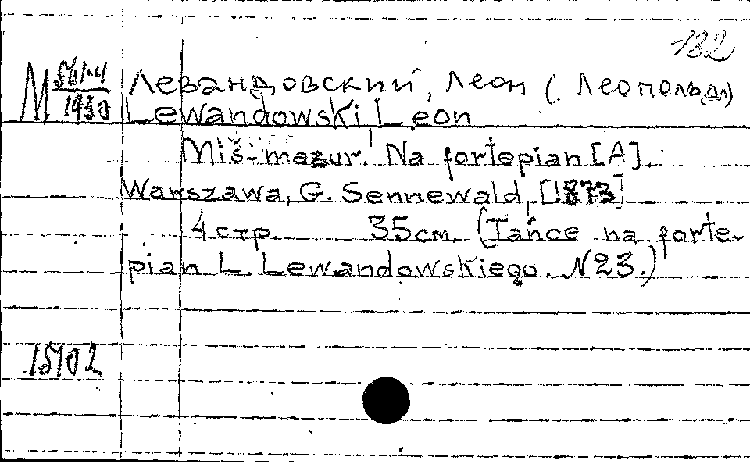 182
М 561-4/1930 Левандовский, Леон (Леопольд)
Lewandowski Leon
Miś-mazur. Na fortepian [A].
Warszawa, G. Sennewald, [1873]
4 стр. 35 см. (Tańce na forte-
pian L. Lewandowskiego. N 23.)
15102